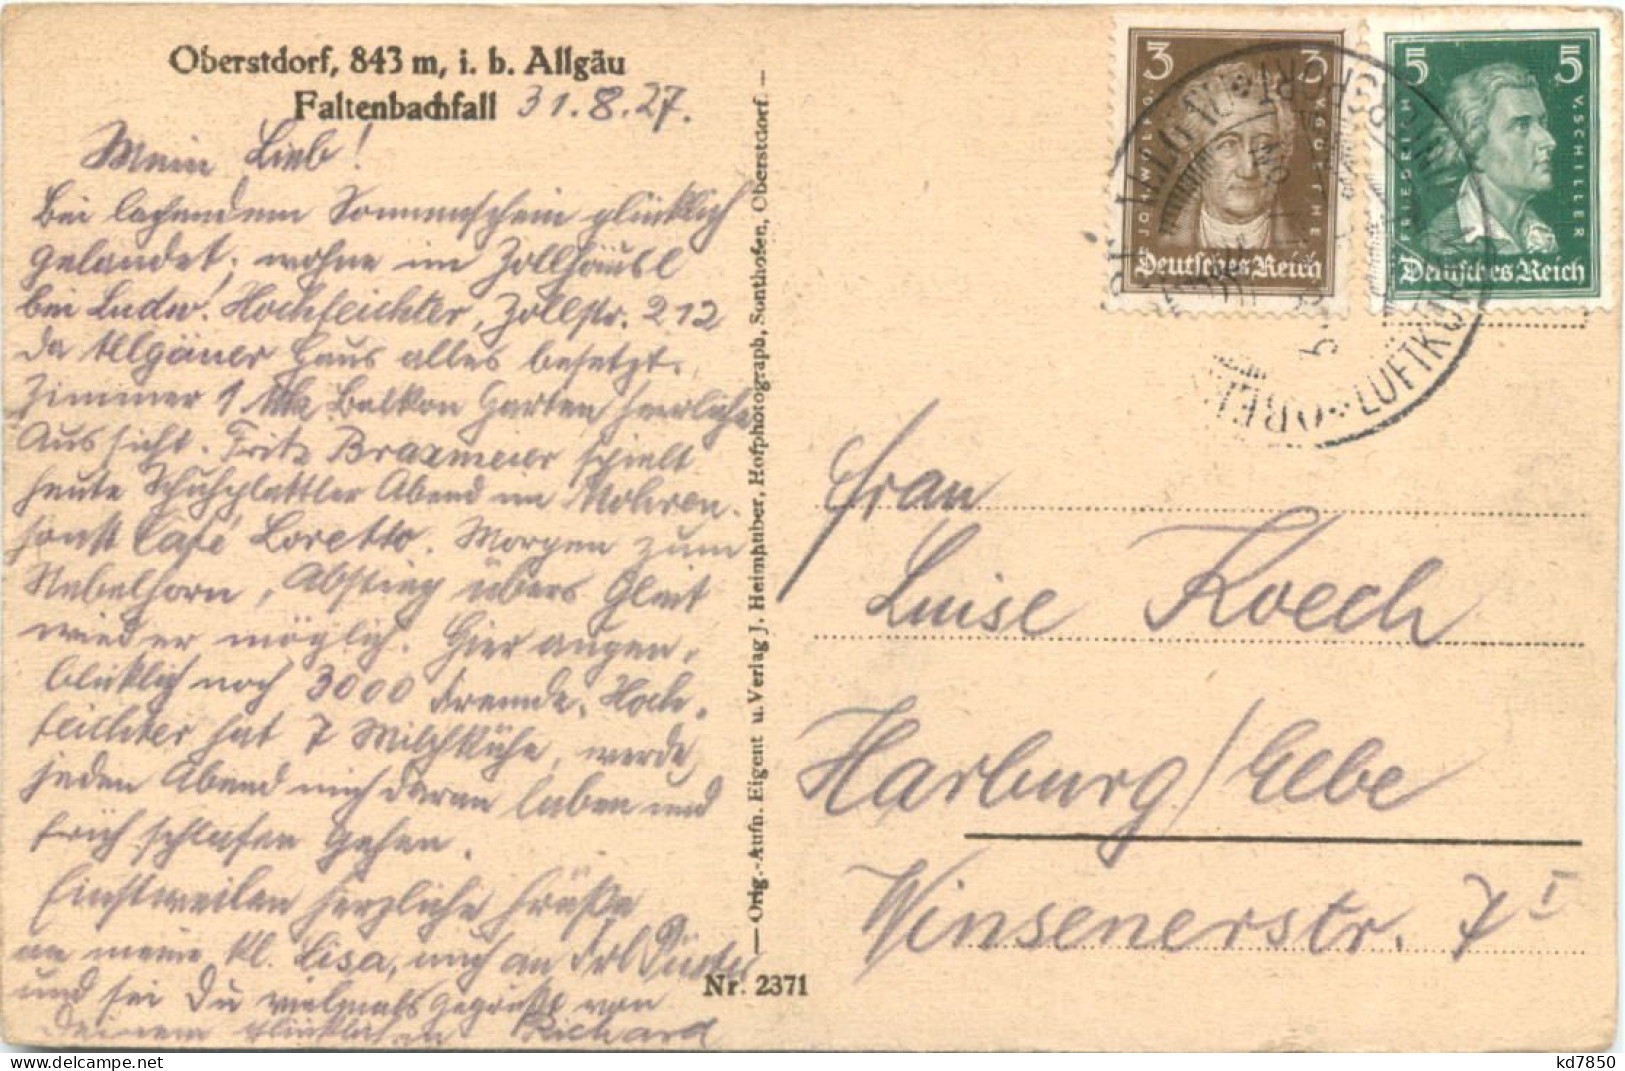 Oberstdorf, 843 m, i. b. Allgäu
Faltenbachfall 31.8.27.
Mein Lieb!
Bei lachendem Sonnenschein glücklich
gelandet, wohne im Zollhäusl
bei Ludw. Hochfeichter, Zollstr. 212
da Allgäuer Haus alles besetzt.
Zimmer 1 Balkon Garten herrliche
Aussicht. Fritz Braxmeier spielt
heute Schuhplattler Abend im Mohren.
sonst Café Loretto. Morgen zum
Nebelhorn, Abstieg übers Gleit
wieder möglich. Hier augen-
blicklich noch 3000 Fremde. Hoch-
feichter hat 7 Milchkühe, werde
jeden Abend mich daran laben und
früh schlafen gehen.
Einstweilen herzliche Grüße
an meine kl. Lisa, auch an Frl
und sei Du vielmals gegrüßt von
Deinem glücklichen Richard
Orig.-Aufn. Eigent u. Verlag J. Heimhuber, Hofphotograph, Sonthofen, Oberstdorf.
Nr. 2371
3 3
JOH. WOLFG. V. GOETHE
Deutsches Reich
5 5
FRIEDRICH V. SCHILLER
Deutsches Reich
LUFTKUR
Frau
Luise Koech
Harburg/Elbe
Winsenerstr. 7 I
kd7850